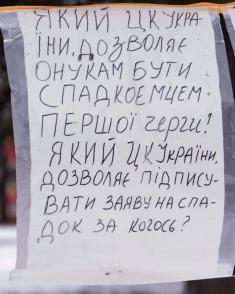 ЯКИЙ ЦК УКРА-
ЇНИ, ДОЗВОЛЯЄ
ОНУКАМ БУТИ
СПАДКОЄМЦЕМ-
ПЕРШОЇ ЧЕРГИ!
ЯКИЙ ЦК УКРАЇНИ,
ДОЗВОЛЯЄ ПІДПИСУ-
ВАТИ ЗАЯВУ НА СПА-
ДОК ЗА КОГОСЬ?